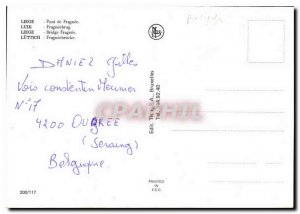 LIEGE - Pont de Fragnée.
LUIK - Fragnéebrug.
LIEGE - Bridge Fragnée.
LÜTTICH - Fragneebrücke.
DANIEZ Gilles
Voie constantin Meunier
N° 17
4200 OUGRÉE
(Seraing)
Belgique
200/117
Edit. Bruxelles
PRINTED
IN
E.E.C.
PICAPHIL.COM